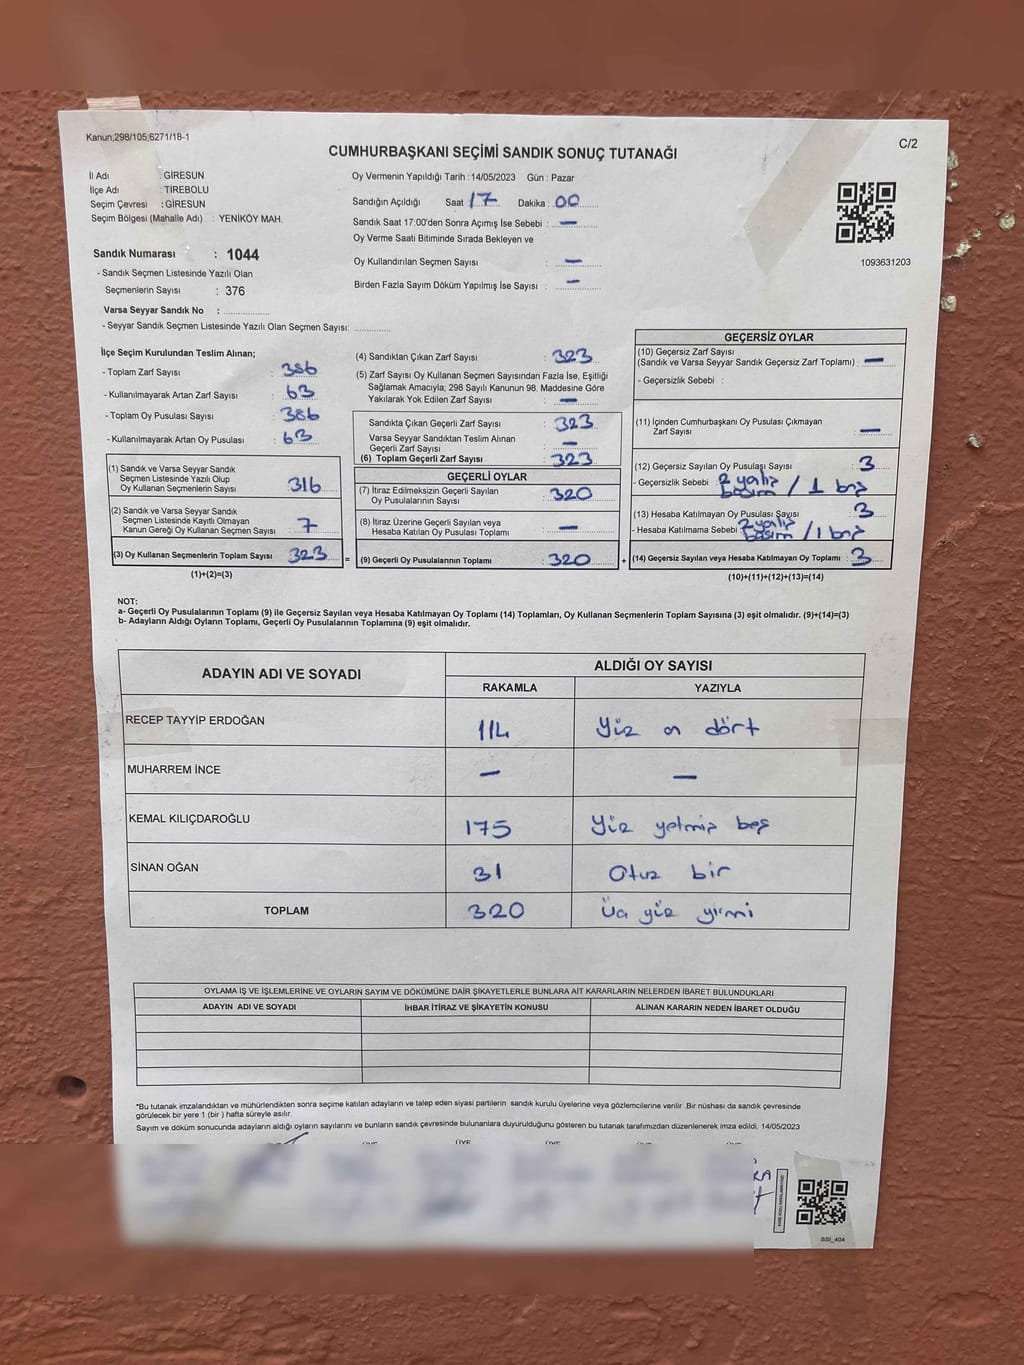 Kanun;298/105;6271/18-1
C/2
CUMHURBAŞKANI SEÇİMİ SANDIK SONUÇ TUTANAĞI
İl Adı : GİRESUN
İlçe Adı : TİREBOLU
Seçim Çevresi : GİRESUN
Seçim Bölgesi (Mahalle Adı) : YENİKÖY MAH.
Sandık Numarası : 1044
- Sandık Seçmen Listesinde Yazılı Olan
Seçmenlerin Sayısı : 376
Varsa Seyyar Sandık No :
- Seyyar Sandık Seçmen Listesinde Yazılı Olan Seçmen Sayısı:
Oy Vermenin Yapıldığı Tarih :14/05/2023 Gün : Pazar
Sandığın Açıldığı Saat 17 Dakika : 00
Sandık Saat 17:00'den Sonra Açımış İse Sebebi : —
Oy Verme Saati Bitiminde Sırada Bekleyen ve
Oy Kullandırılan Seçmen Sayısı : —
Birden Fazla Sayım Döküm Yapılmış İse Sayısı : —
1093631203
İlçe Seçim Kurulundan Teslim Alınan;
- Toplam Zarf Sayısı : 386
- Kullanılmayarak Artan Zarf Sayısı : 63
- Toplam Oy Pusulası Sayısı : 386
- Kullanılmayarak Artan Oy Pusulası : 63
(1) Sandık ve Varsa Seyyar Sandık
Seçmen Listesinde Yazılı Olup
Oy Kullanan Seçmenlerin Sayısı 316
(2) Sandık ve Varsa Seyyar Sandık
Seçmen Listesinde Kayıtlı Olmayan
Kanun Gereği Oy Kullanan Seçmen Sayısı : 7
(3) Oy Kullanan Seçmenlerin Toplam Sayısı 323 =
(1)+(2)=(3)
(4) Sandıktan Çıkan Zarf Sayısı : 323
(5) Zarf Sayısı Oy Kullanan Seçmen Sayısından Fazla İse, Eşitliği
Sağlamak Amacıyla; 298 Sayılı Kanunun 98. Maddesine Göre
Yakılarak Yok Edilen Zarf Sayısı : —
Sandıkta Çıkan Geçerli Zarf Sayısı : 323
Varsa Seyyar Sandıktan Teslim Alınan
Geçerli Zarf Sayısı : —
(6) Toplam Geçerli Zarf Sayısı : 323
GEÇERLİ OYLAR
(7) İtiraz Edilmeksizin Geçerli Sayılan
Oy Pusulasının Sayısı : 320
(8) İtiraz Üzerine Geçerli Sayılan veya
Hesaba Katılan Oy Pusulası Toplamı : —
(9) Geçerli Oy Pusulalarının Toplamı : 320 +
GEÇERSİZ OYLAR
(10) Geçersiz Zarf Sayısı
(Sandık ve Varsa Seyyar Sandık Geçersiz Zarf Toplamı) : —
- Geçersizlik Sebebi :
(11) İçinden Cumhurbaşkanı Oy Pusulası Çıkmayan
Zarf Sayısı : —
(12) Geçersiz Sayılan Oy Pusulası Sayısı : 3
- Geçersizlik Sebebi : 2 yalış
basım / 1 boş
(13) Hesaba Katılmayan Oy Pusulası Sayısı : 3
- Hesaba Katılmama Sebebi : 2 yalış
basım / 1 boş
(14) Geçersiz Sayılan veya Hesaba Katılmayan Oy Toplamı : 3
(10)+(11)+(12)+(13)=(14)
NOT:
a- Geçerli Oy Pusulalarının Toplamı (9) ile Geçersiz Sayılan veya Hesaba Katılmayan Oy Toplamı (14) Toplamları, Oy Kullanan Seçmenlerin Toplam Sayısına (3) eşit olmalıdır. (9)+(14)=(3)
b- Adayların Aldığı Oyların Toplamı, Geçerli Oy Pusulalarının Toplamına (9) eşit olmalıdır.
ADAYIN ADI VE SOYADI
ALDIĞI OY SAYISI
RAKAMLA YAZIYLA
RECEP TAYYİP ERDOĞAN 114 Yüz on dört
MUHARREM İNCE — —
KEMAL KILIÇDAROĞLU 175 Yüz yetmiş beş
SİNAN OĞAN 31 Otuz bir
TOPLAM 320 Üç yüz yirmi
OYLAMA İŞ VE İŞLEMLERİNE VE OYLARIN SAYIM VE DÖKÜMÜNE DAİR ŞİKAYETLERLE BUNLARA AİT KARARLARIN NELERDEN İBARET BULUNDUKLARI
ADAYIN ADI VE SOYADI İHBAR İTİRAZ VE ŞİKAYETİN KONUSU ALINAN KARARIN NEDEN İBARET OLDUĞU
*Bu tutanak imzalandıktan ve mühürlendikten sonra seçime katılan adayların ve talep eden siyasi partilerin sandık kurulu üyelerine veya gözlemcilerine verilir .Bir nüshası da sandık çevresinde
görülecek bir yere 1 (bir ) hafta süreyle asılır.
Sayım ve döküm sonucunda adayların aldığı oyların sayılarını ve bunların sandık çevresinde bulunanlara duyurulduğunu gösteren bu tutanak tarafımızdan düzenlenerek imza edildi. 14/05/2023